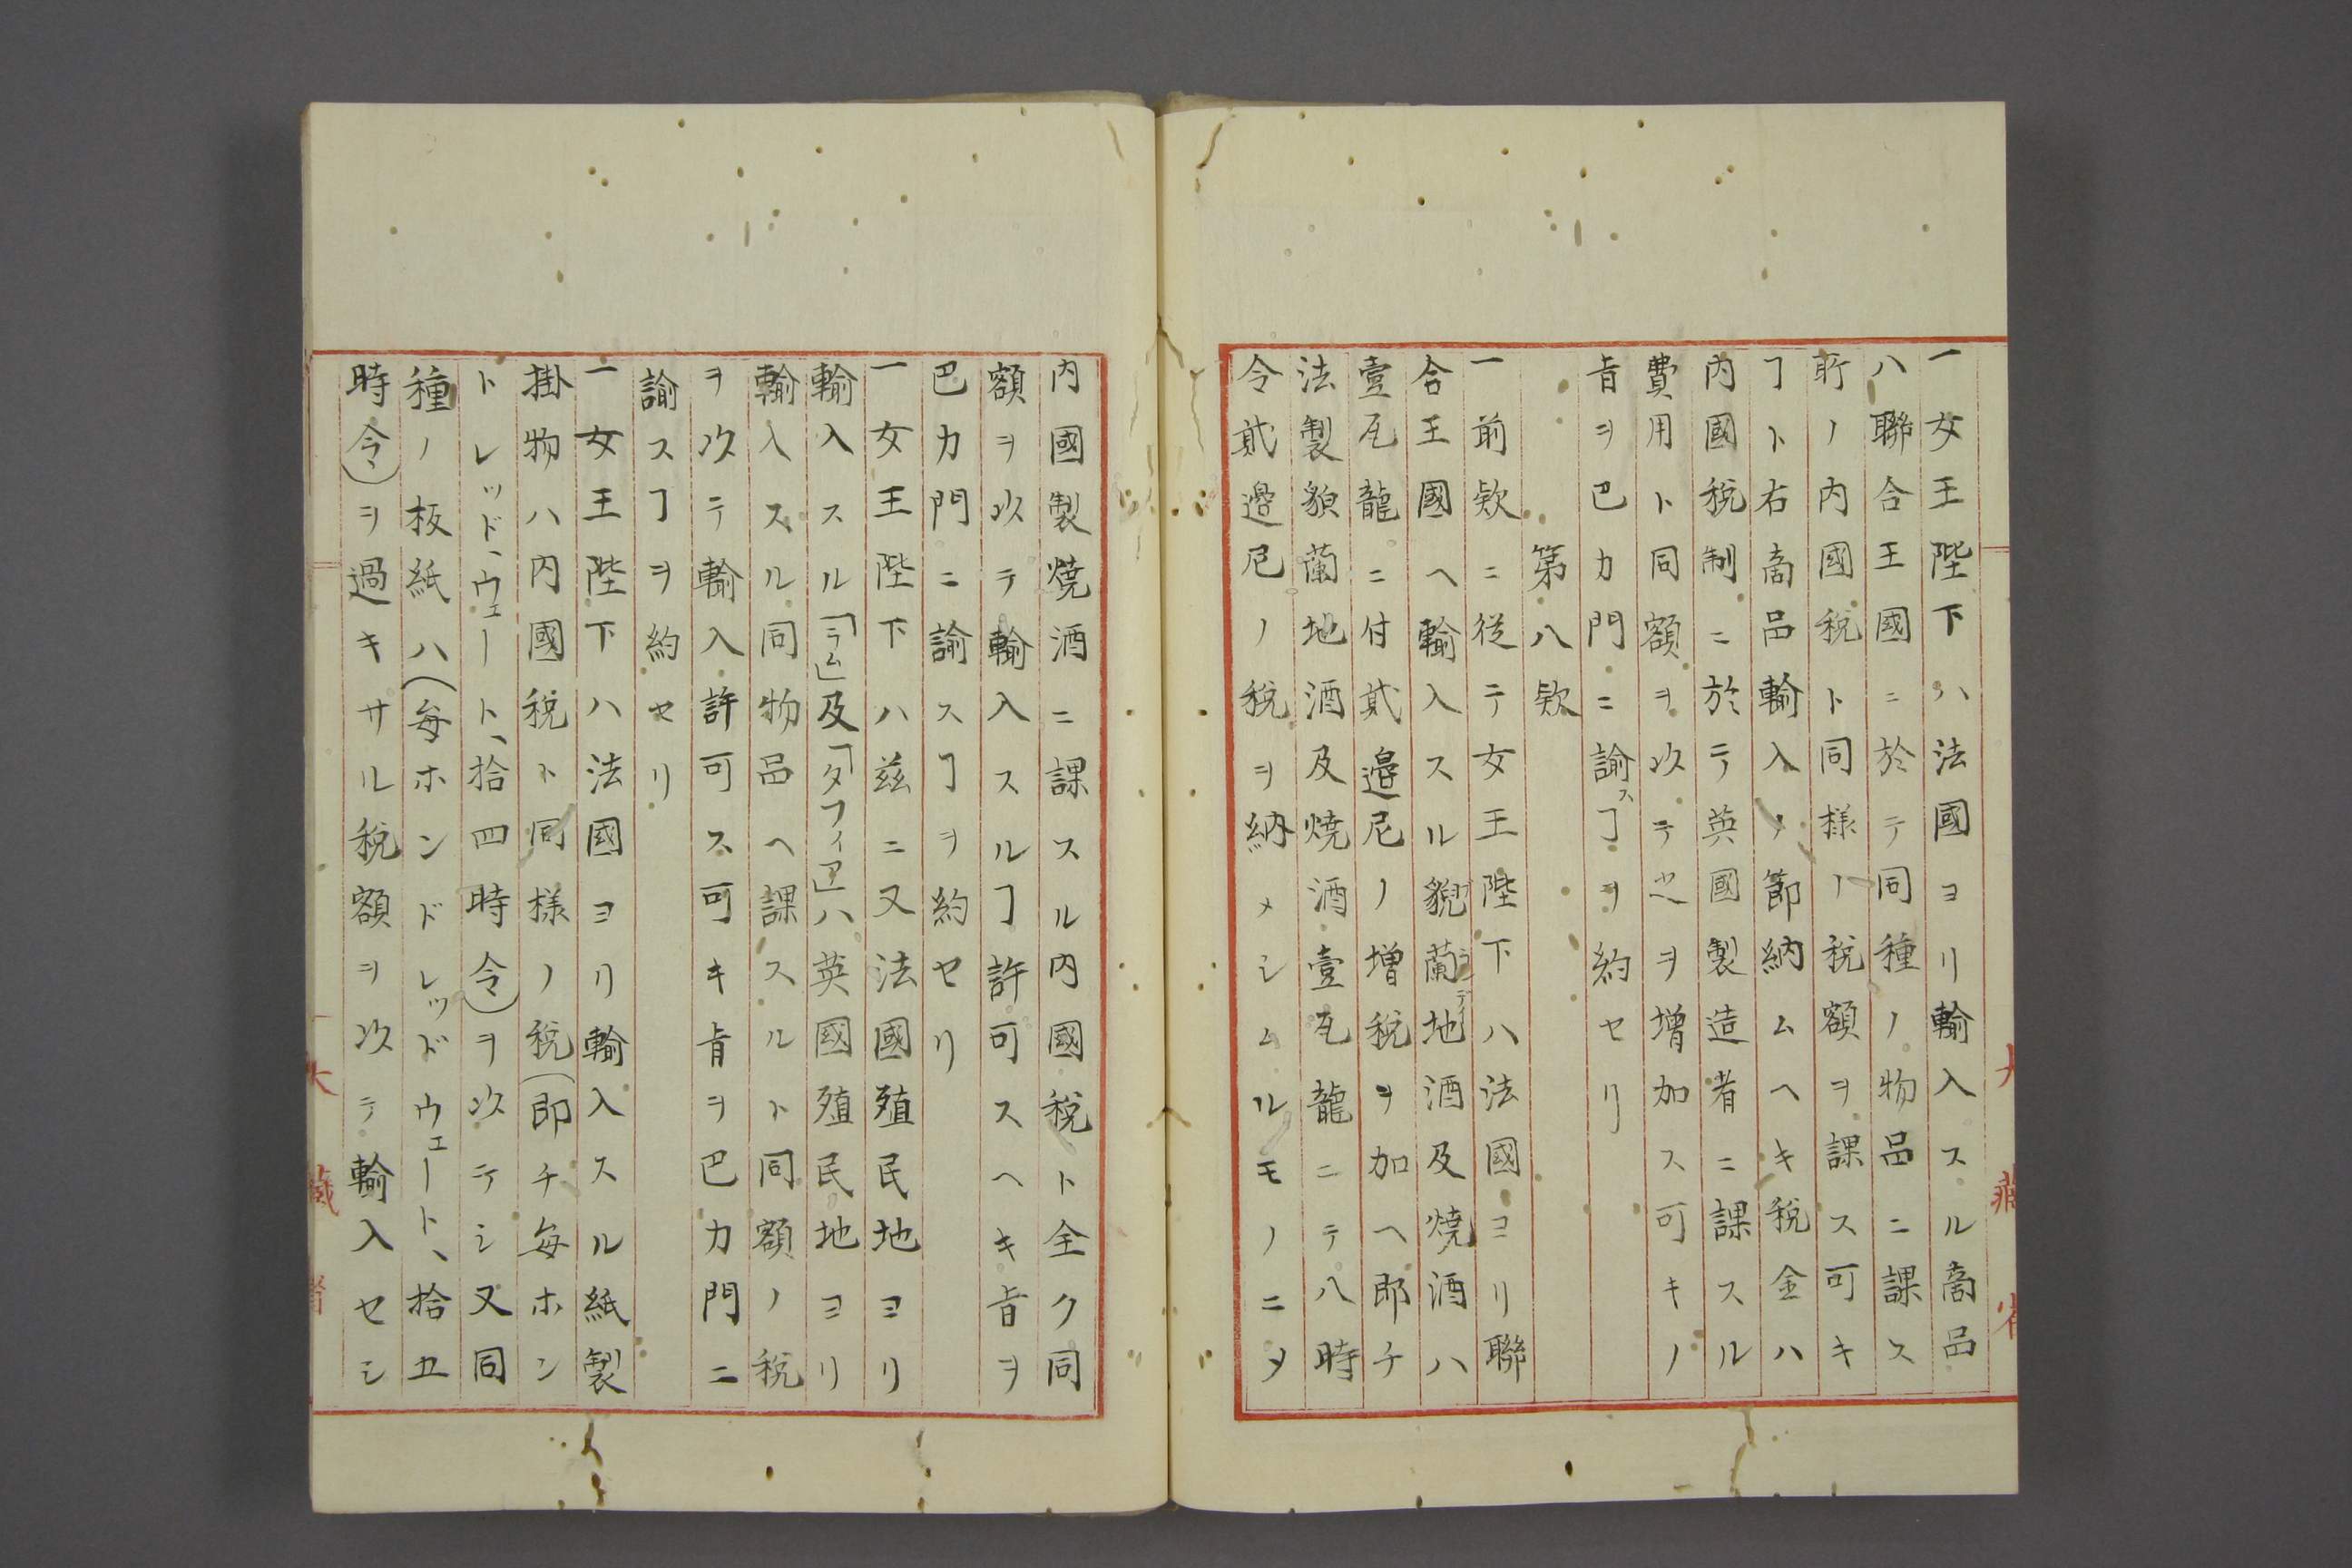 一女王陛下ハ法國ヨリ輸入スル啇品
八聯合王國ニ於テ同種ノ物品ニ課ス
所ノ内國税ト同様ノ税額ヲ課ス可キ
ヿト右啇品輸入ノ節納ムヘキ税金ハ
内國税制ニ於テ英國製造者ニ課スル
費用ト同額ヲ以テ之ヲ増加ス可キノ
旨ヲ巴力門ニ諭スヿヲ約セリ
第八欵
一前欵ニ従テ女王陛下ハ法國ヨリ聯
合王國ヘ輸入スル貎蘭地酒及焼酒ハ
壹瓦龍ニ付貳邉尼ノ増税ヲ加ヘ即チ
法製貌蘭地酒及焼酒壹瓦龍ニテ八時
令貳邉尼ノ税ヲ納メシムルモノニタ
内國製焼酒ニ課スル内國税ト全ク同
額ヲ以テ輸入スルヿ許可スヘキ旨ヲ
巴力門ニ諭スヿヲ約セリ
一女王陛下ハ茲ニ又法國殖民地ヨリ
輸入スル「ラム」及「タフィア」ハ英國殖民地ヨリ
輸入スル同物品ヘ課スルト同額ノ税
ヲ以テ輸入許可ス可キ旨ヲ巴力門ニ
諭スヿヲ約セリ
一女王陛下ハ法國ヨリ輸入スル紙製
掛物ハ内國税ト同様ノ税(即チ毎ホン
ドレッド、ウェート、拾四時令)ヲ以テシ又同
種ノ板紙ハ(毎ホンドレッドウェート、拾五
時令)ヲ過キサル税額ヲ以テ輸入セシ
大藏省
大藏省